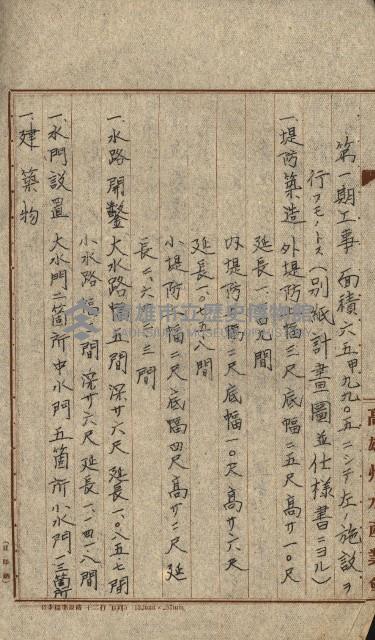 第一期工事 面積六五甲九九〇五ニシテ左ノ施設ヲ
行フモノトス(別紙計畫圖並仕様書ニヨル)
一、堤防築造 外堤防幅三尺 底幅二五尺 高サ一〇尺
延長一、一四九間
内堤防幅二尺 底幅一〇尺 高サ六尺
延長一〇七五八間
小堤防幅二尺 底幅四尺 高サ二尺 延
長二、六二三間
一、水路開鑿 大水路幅五間 深サ六尺 延長一、〇八五、七間
小水路幅 間 深サ六尺 延長一、一四一八間
一、水門設置 大水門二箇所 中水門五箇所 小水門一三箇所
一、建築物
高雄州水産業會
高雄市立歷史博物館
KAOHSIUNG MUSEUM OF HISTORY